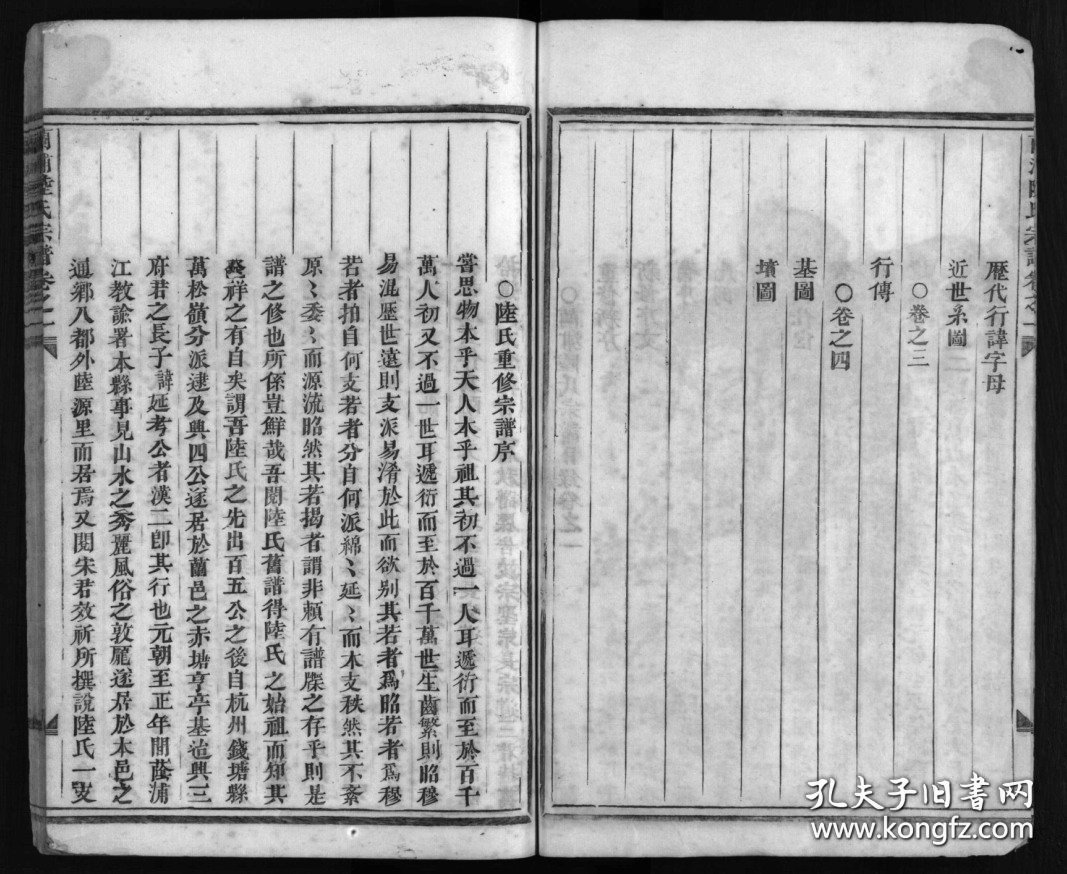 歷代行諱字母
近世系圖
○卷之三
行傳
○卷之四
基圖
墳圖
○陸氏重修宗譜序
嘗思物本乎天人本乎祖其初不過一人耳遞衍而至於百千
萬人初又不過一世耳遞衍而至於百千萬世生齒繁則昭穆
易混歷世遠則支派易淆於此而欲别其若者爲昭若者爲穆
若者拍自何支若者分自何派綿〻延〻而本支秩然其不紊
原〻委〻而源流昭然其若揭者謂非賴有譜牒之存乎則是
譜之修也所係豈鮮哉吾閱陸氏舊譜得陸氏之始祖而知其
發祥之有自矣謂吾陸氏之先出百五公之後自杭州錢塘縣
萬松嶺分派逮及興四公遂居於蘭邑之赤塘亨亭基迨興三
府君之長子諱延考公者漢二即其行也元朝至正年間蔭浦
江教諭署本縣事見山水之秀麗風俗之敦厖遂居於本邑之
通鄉八都外陸源里而居焉又閱朱君效祈所撰說陸氏一支
蘭浦陸氏宗譜卷之一
孔夫子旧书网
www.kongfz.com